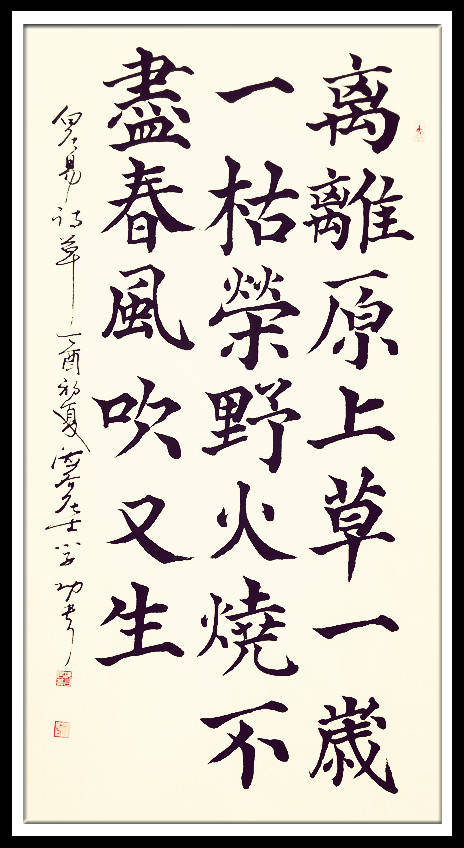 离離原上草一歲
一枯榮野火燒不
盡春風吹又生
白居易诗草丁酉初夏